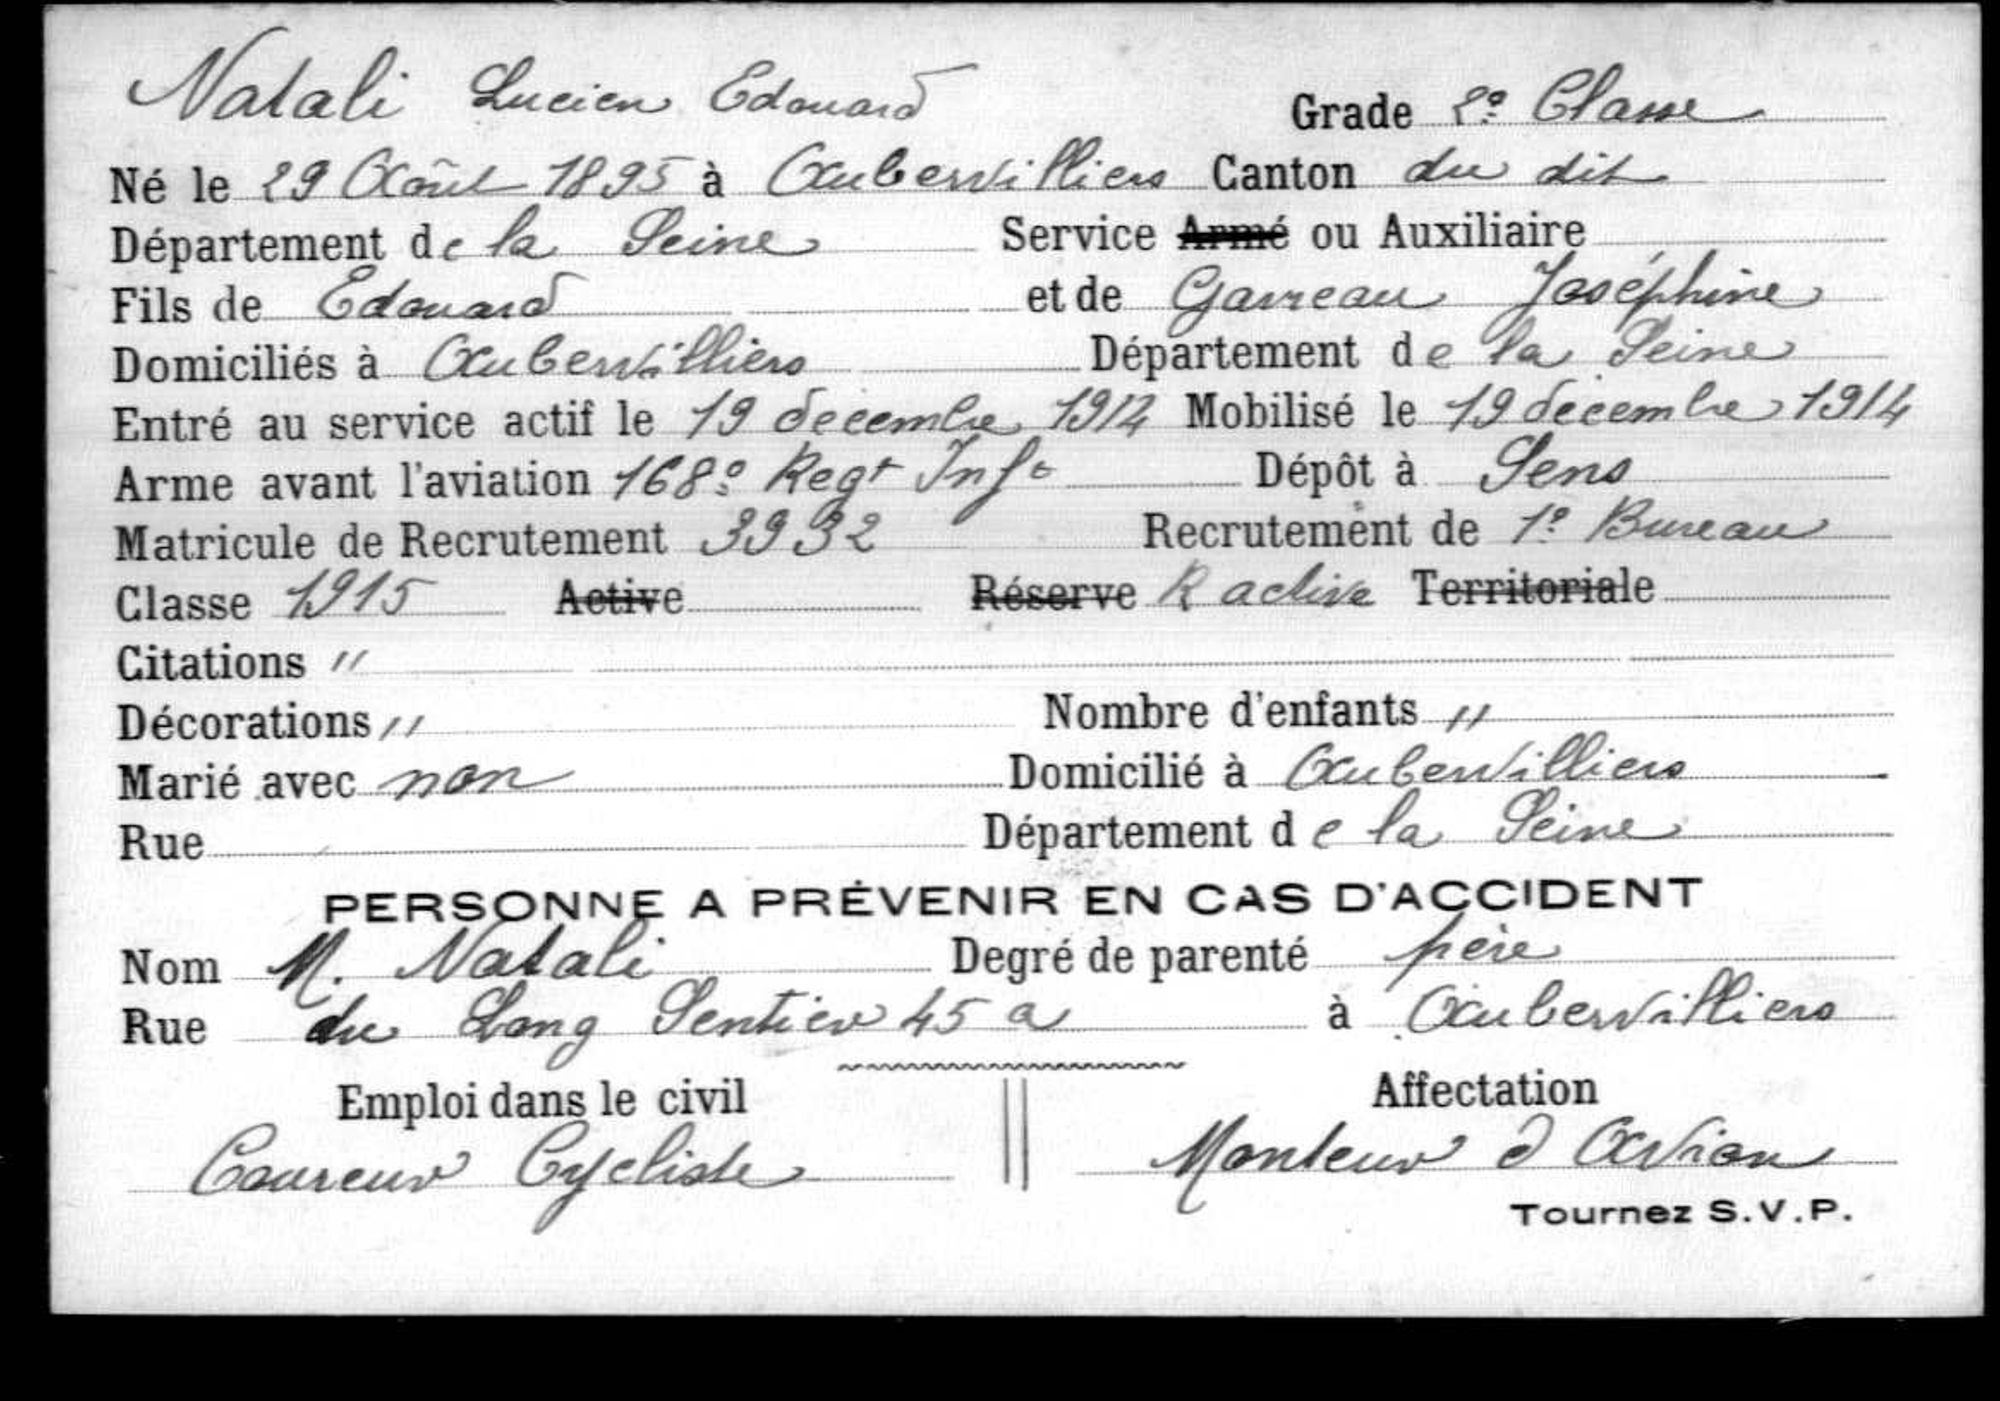 Natali Lucien Edouard Grade 2e Classe
Né le 29 Août 1895 à Aubervilliers Canton du dit
Département de la Seine Service Armé ou Auxiliaire
Fils de Edouard et de Garreau Joséphine
Domiciliés à Aubervilliers Département de la Seine
Entré au service actif le 19 decembre 1914 Mobilisé le 19 decembre 1914
Arme avant l'aviation 168e Regt Infe Dépôt à Sens
Matricule de Recrutement 3932 Recrutement de 1e Bureau
Classe 1915 Active Réserve R active Territoriale
Citations "
Décorations " Nombre d'enfants "
Marié avec non Domicilié à Aubervilliers
Rue Département de la Seine
PERSONNE A PRÉVENIR EN CAS D'ACCIDENT
Nom M. Natali Degré de parenté père
Rue du Long Sentier 45 a à Aubervilliers
Emploi dans le civil Affectation
Coureur Cycliste Monteur d Avion
Tournez S.V.P.